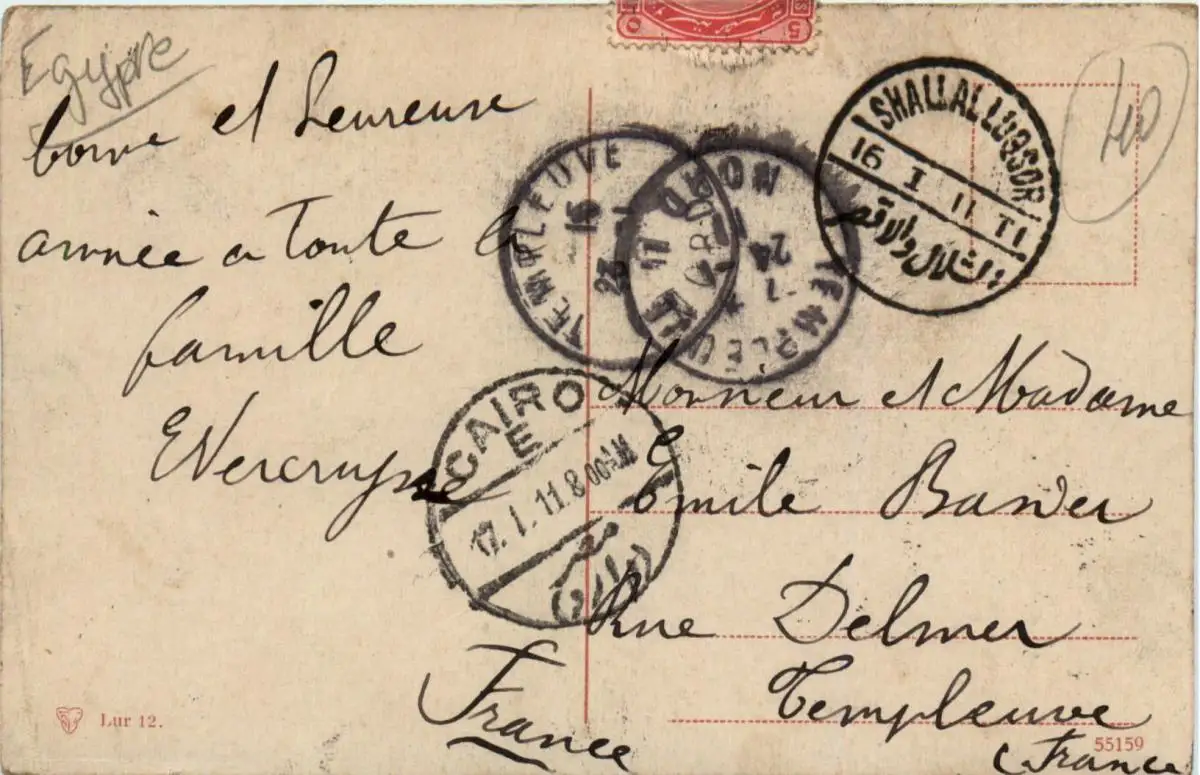 Egypte
40
bonne et heureuse
année a toute la
famille
EVercruysse
SHALLAL LUQSOR
16 I 11 T1
الشلال والاقصر
TEMPLEUVE
NORD
TEMPLEUVE
NORD
CAIRO
E
17. I. 11. 8 00 AM
Monsieur et Madame
Emile
Rue Delmer
Templeuve
(France
France
Lur 12.
55159